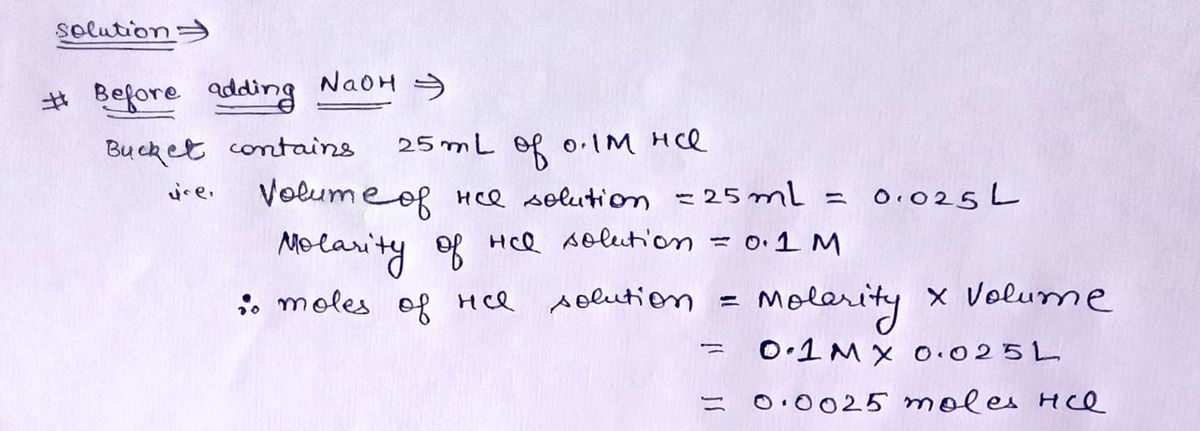 solution ⇒
# Before adding NaOH ⇒
Bucket contains 25 mL of 0.1M HCl
i.e. Volume of HCl solution = 25 ml = 0.025 L
Molarity of HCl solution = 0.1 M
∴ moles of HCl solution = Molarity × Volume
= 0.1 M × 0.025 L
= 0.0025 moles HCl